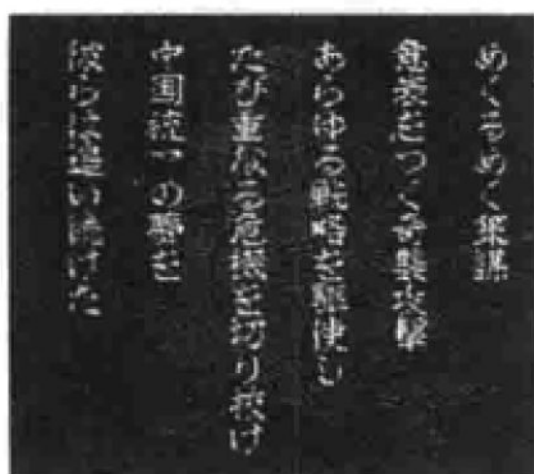 めくるめく策謀
意表をつく奇襲攻撃
あらゆる戦略を駆使い
たび重なる危機を切り抜け
中国統一の夢を
彼らは追い続けた